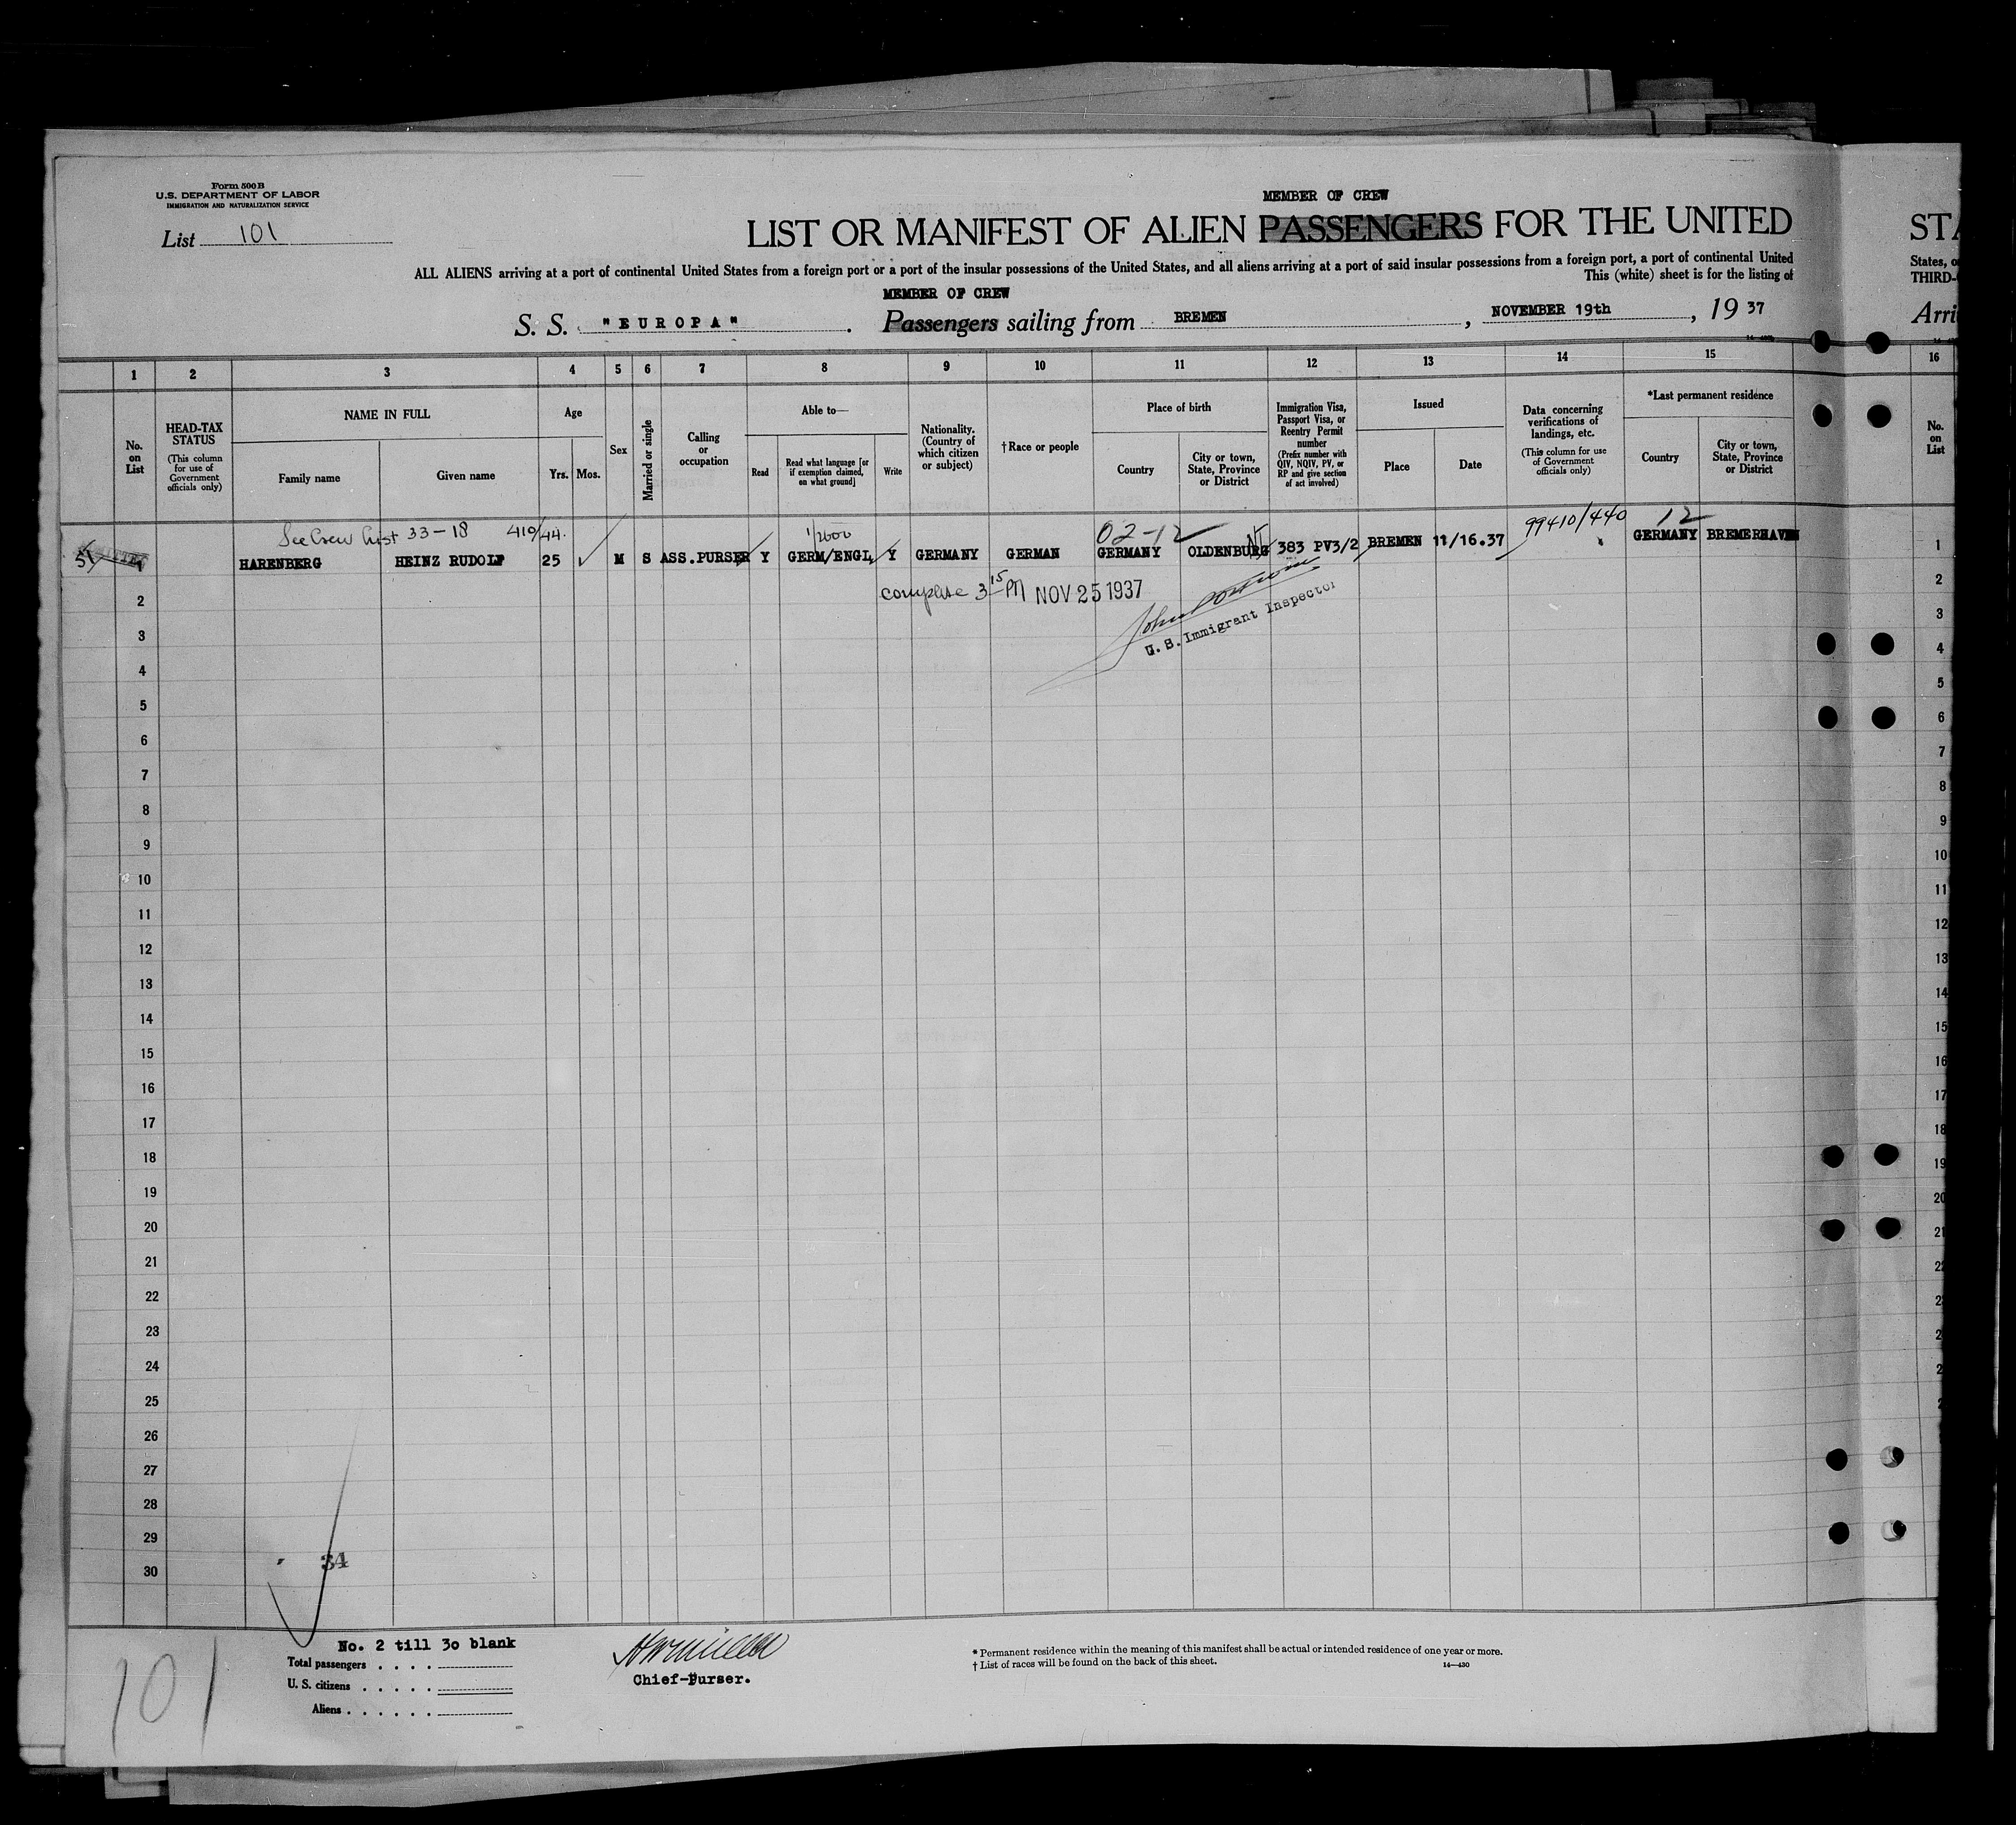 Form 500B
U.S. DEPARTMENT OF LABOR
IMMIGRATION AND NATURALIZATION SERVICE
List 101
MEMBER OF CREW
LIST OR MANIFEST OF ALIEN PASSENGERS FOR THE UNITED
STA
ALL ALIENS arriving at a port of continental United States from a foreign port or a port of the insular possessions of the United States, and all aliens arriving at a port of said insular possessions from a foreign port, a port of continental United
States, o
This (white) sheet is for the listing of
THIRD-
MEMBER OF CREW
S. S. "EUROPA". Passengers sailing from BREMEN, NOVEMBER 19th, 1937
Arri
1 2 3 4 5 6 7 8 9 10 11 12 13 14 15 16
No. on List
HEAD-TAX STATUS (This column for use of Government officials only)
NAME IN FULL
Family name
Given name
Age
Yrs. Mos.
Sex
Married or single
Calling or occupation
Able to—
Read
Read what language [or if exemption claimed, on what ground]
Write
Nationality. (Country of which citizen or subject)
†Race or people
Place of birth
Country
City or town, State, Province or District
Immigration Visa, Passport Visa, or Reentry Permit number (Prefix number with QIV, NQIV, PV, or RP and give section of act involved)
Issued
Place
Date
Data concerning verifications of landings, etc. (This column for use of Government officials only)
*Last permanent residence
Country
City or town, State, Province or District
No. on List
See Crew List 33-18 410/44. 1/2000 02-12 99410/440 12
1 HARENBERG HEINZ RUDOLF 25 M S ASS.PURSER Y GERM/ENGL Y GERMANY GERMAN GERMANY OLDENBURG 383 PV3/2 BREMEN 11/16.37 GERMANY BREMERHAVEN 1
complete 3 15 PM NOV 25 1937
U. S. Immigrant Inspector
2
3
4
5
6
7
8
9
10
11
12
13
14
15
16
17
18
19
20
21
22
23
24
25
26
27
28
29
30
34
101
No. 2 till 3o blank
Total passengers
U. S. citizens
Aliens
Chief-Purser.
* Permanent residence within the meaning of this manifest shall be actual or intended residence of one year or more.
† List of races will be found on the back of this sheet.
14—430